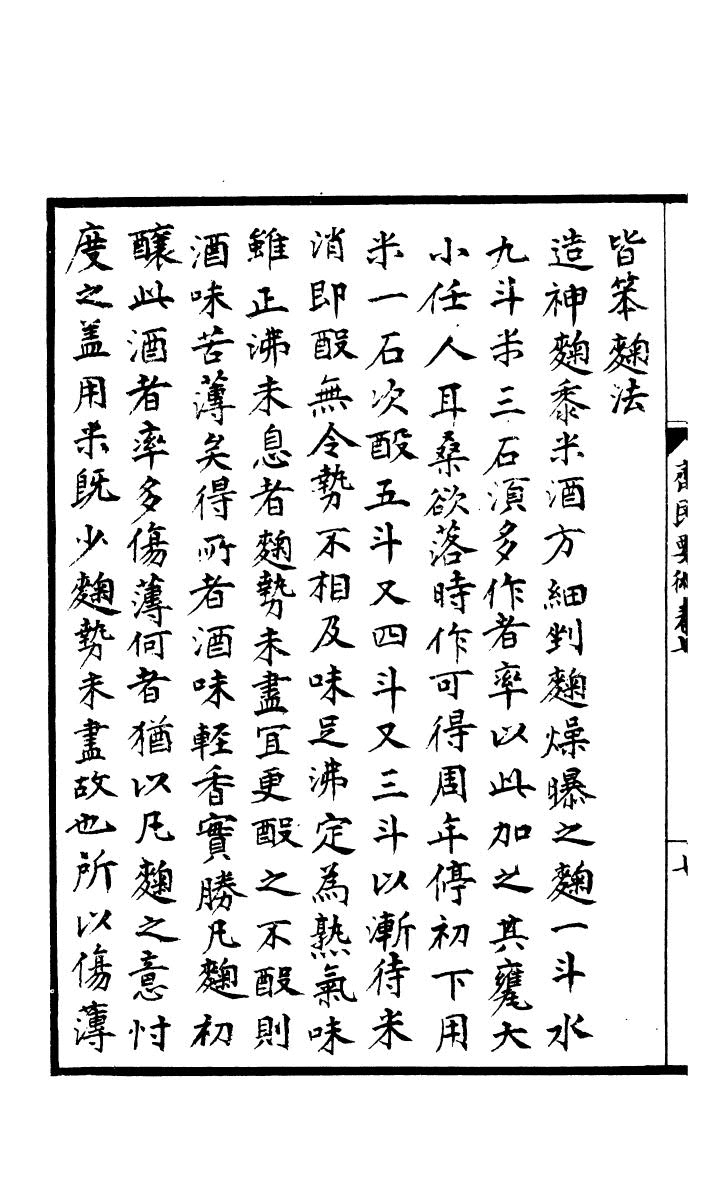 皆笨麴法
造神麴黍米酒方細剉麴燥曝之麴一斗水
九斗米三石湏多作者率以此加之其甕大
小任人耳桑欲落時作可得周年停初下用
米一石次酘五斗又四斗又三斗以漸待米
消即酘無令勢不相及味足沸定為熟氣味
雖正沸未息者麴勢未盡冝更酘之不酘則
酒味苦薄矣得所者酒味輕香實勝凡麴初
釀此酒者率多傷薄何者猶以凡麴之意忖
度之盖用米既少麴勢未盡故也所以傷薄
齊民要術卷七
七